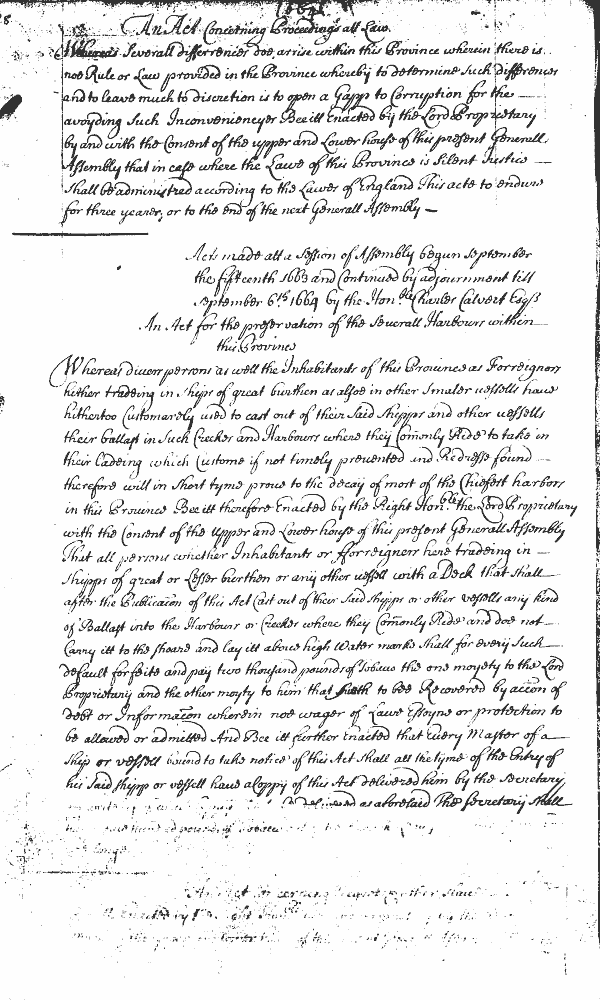 1662
An Act Concerning Proceedings att Law.
Whereas Severall differences doe arrise within this Province wherein there is
noe Rule or Law provided in the Province whereby to determine Such differences
and to leave much to discretion is to open a Gapp to Corruption for the
avoyding Such Inconveniencyes Bee itt Enacted by the Lord Proprietary
by and with the Consent of the vpper and Lower house of this present Generall
Assembly that in case where the Lawe of this Province is Silent Justice
Shall be administred according to the Lawes of England This acte to endure
for three yeares, or to the end of the next Generall Assembly —
Acts made att a Session of Assembly begun September
the fifteenth 1663 and Continued by adjournment till
September 6th 1664 by the Honble Charles Calvert Esqr
An Act for the preservation of the Severall Harbours within
this Province
Whereas divers persons as well the Inhabitants of this Province as Forreigners
hither tradeing in Ships of great burthen as alsoe in other Smaler vessells have
hithertoo Customarely used to cast out of their Said Shipps and other vessells
their ballast in Such Creekes and Harbours where they Comonly Ride to take in
their Ladeing which Custome if not timely prevented and Redresse found
therefore will in Short tyme prove to the decay of most of the Chiefest harbors
in this Province Bee itt therefore Enacted by the Right Honble the Lord Proprietary
with the Consent of the vpper and Lower house of this present Generall Assembly
That all persons whether Inhabitants or fforreigners here tradeing in
Shipps of great or Lesser burthen or any other vessell with a Deck that shall
after the Publicacon of this Act Cast out of their Said Shipps or other vessells any kind
of Ballast into the Harbours or Creekes where they Comonly Ride and doe not
Carry itt to the shoare and lay itt above high Water marke Shall for every Such
default forfeite and pay two thousand pounds of Tobacco the one moyety to the Lord
Proprietary and the other moyty to him that to bee Recovered by accon of
debt or Informacon wherein noe wager of Lawe Essoyne or protection to
be allowed or admitted And Bee itt further Enacted that Every Master of a
Ship or vessell bound to take notice of this Act Shall att the tyme of the Entry of
his Said Shipp or vessell have a Coppy of this Act delivered him by the Secretary
delivered as aforesaid The Secretary Shall
Tobacco
An Act